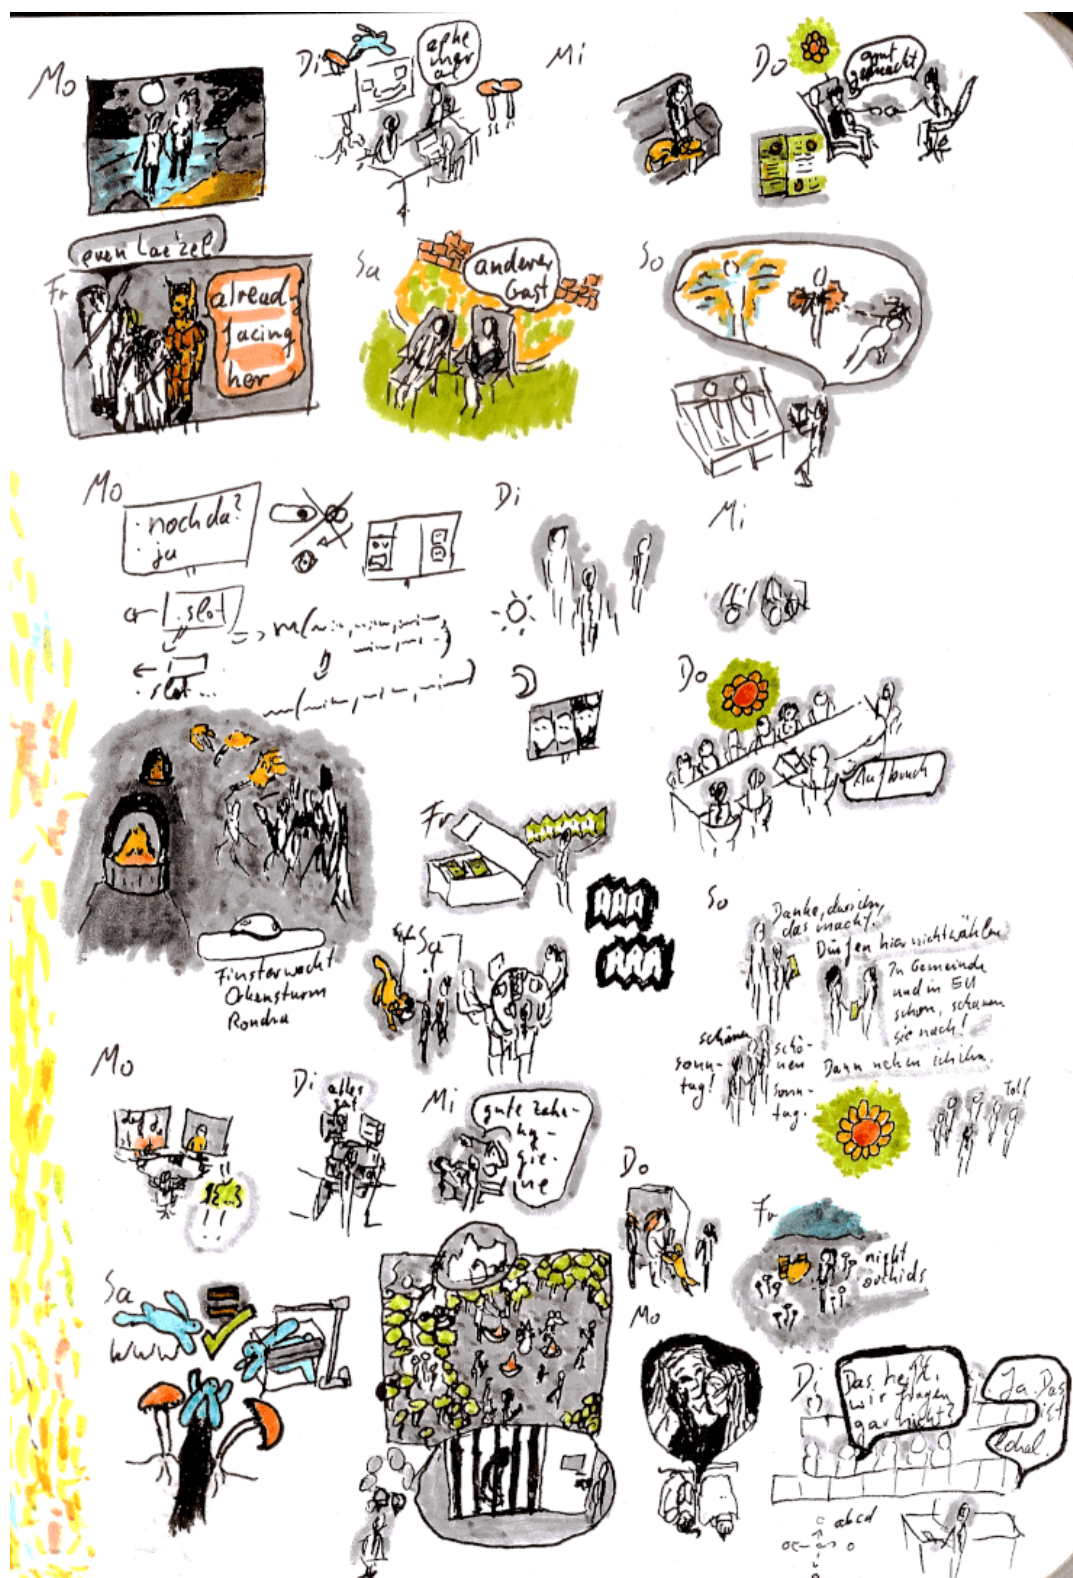 Mo
Di
Mi
Do
gut
gemacht
even Lae'zel
Fr
already
facing
her
Sa
anderer
Gast
So
Mo
· noch da?
· ja
.slot
.slot...
Di
Mi
Do
Aufbruch
Finsterwacht
Rondra
Fr
AAA
AAA
Sa
So
Danke, dass ihr
das macht.
Dürfen hier nicht wählen
In Gemeinde
und in EU
schon, schauen
sie nach!
Dann nehm ich ihn.
schönen
sonn-
tag!
schö-
nen
Sonn-
tag.
Toll!
Mo
Di
alles
gut
Mi
gute Zahn-
hy-
gie-
ne
Do
Fr
nicht
orchids
Sa
www
Mo
Di
Das heißt,
wir fragen
gar nicht?
Ja. Das
ist
egal.
abcd